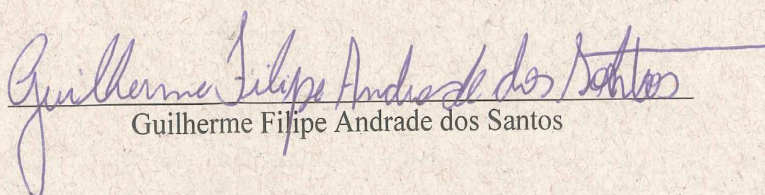 Guilherme Filipe Andrade dos Santos
Guilherme Filipe Andrade dos Santos